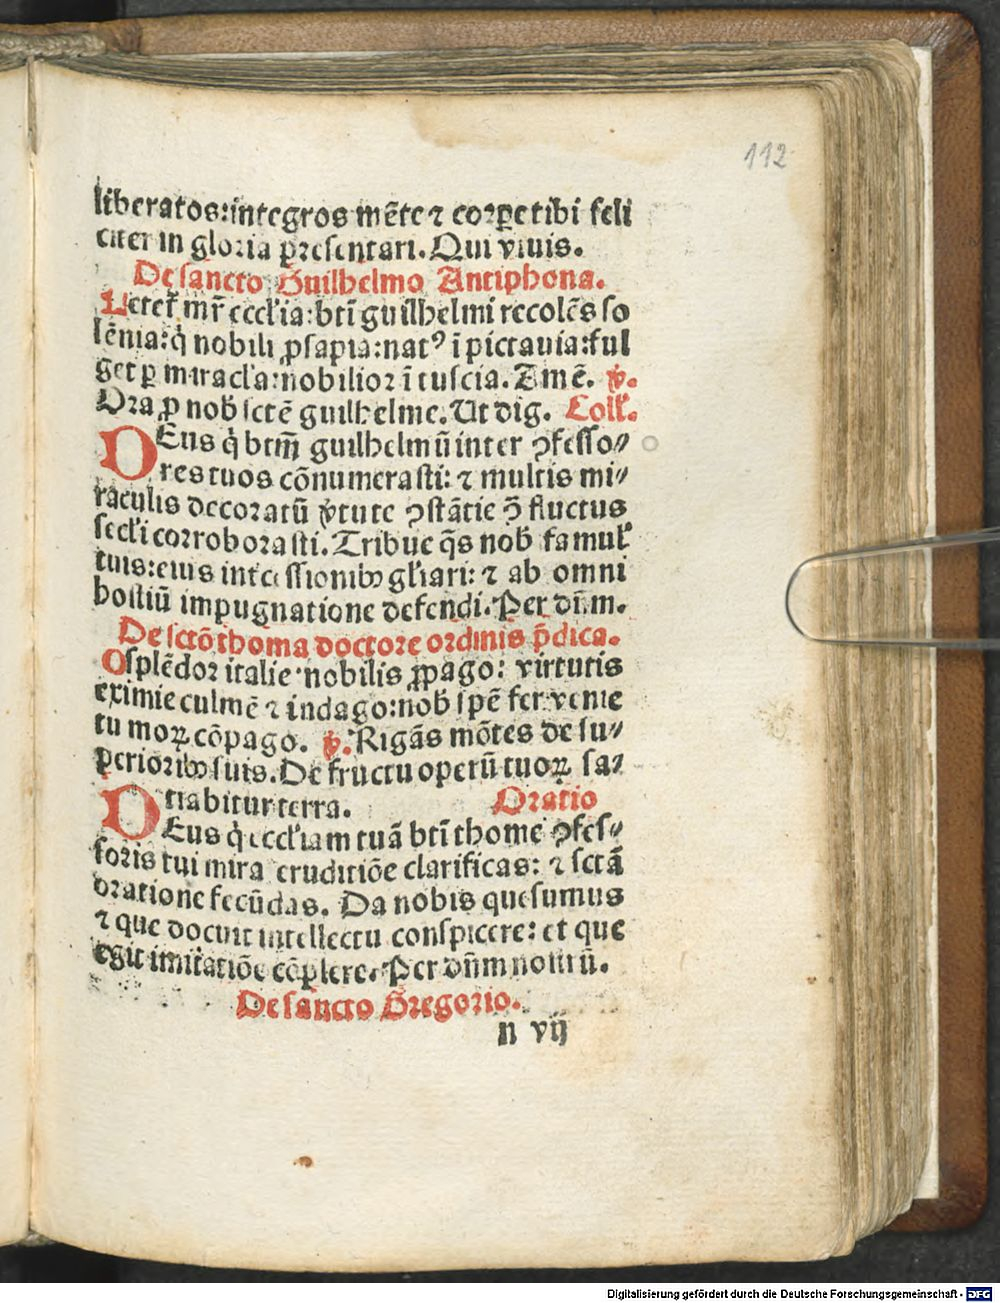 112
liberatos:integros mēte ⁊ corꝑe tibi feli
citer in gloria presentari. Qui viuis.
De sancto Guilhelmo Antiphona.
Letet᷑ mr̄ eccl'ia: bt̄i guilhelmi recolēs so
lēnia: q̇ nobili ꝓsapia: natꝰ ī pictauia: ful
get ꝑ miracl'a: nobilior ī tuscia. Amē. ℣.
Ora ꝓ nob̄ sctē guilhelme. Ut dig. Coll'.
DEus q̇ btm̄ guilhelmū inter ꝯfesso⸗
res tuos cōnumerasti: ⁊ multis mi⸗
raculis decoratū v̓tute ꝯstātie ꝯ̄ fluctus
secl'i corroborasti. Tribue q̄s nob̄ famul'
tuis: eius int̓cessionibꝰ gl'iari: ⁊ ab omni
hostiū impugnatione defendi. Per dn̄m.
De sctō thoma doctore ordinis p̄dica.
O splēdor italie nobilis ꝓpago: virtutis
eximie culmē ⁊ indago: nob̄ spē fer venie
tu moꝝ cōpago. ℣. Rigās mōtes de su⸗
perioribꝰ suis. De fructu operū tuoꝝ sa⸗
tiabitur terra. Oratio
DEus q̇ eccl'iam tuā bt̄i thome ꝯfes⸗
soris tui mira eruditiōe clarificas: ⁊ sctā
oratione fecūdas. Da nobis quesumus
⁊ que docuit intellectu conspicere: et que
egit imitatiōe cōplere. Per dn̄m nostrū.
De sancto Gregorio.
n vij
Digitalisierung gefördert durch die Deutsche Forschungsgemeinschaft - DFG